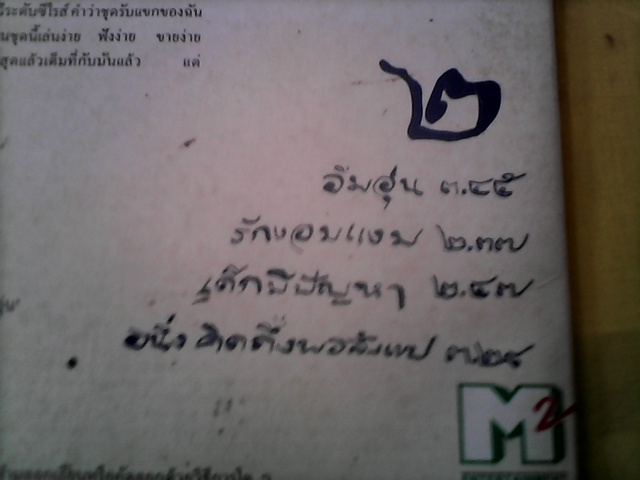 มีระดับซีไรส์ คำว่าชุดรับแขกของฉัน
นชุดนี้เล่นง่าย ฟังง่าย ขายง่าย
สุดแล้วเต็มที่กับมันแล้ว แต่
๒
อิ่มอุ่น ๓.๔๕
รักงอมแงม ๒.๓๗
เด็กมีปัญหา ๒.๔๗
อนึ่ง คิดถึงพอสังเขป
M2
ENTERTAINMENT